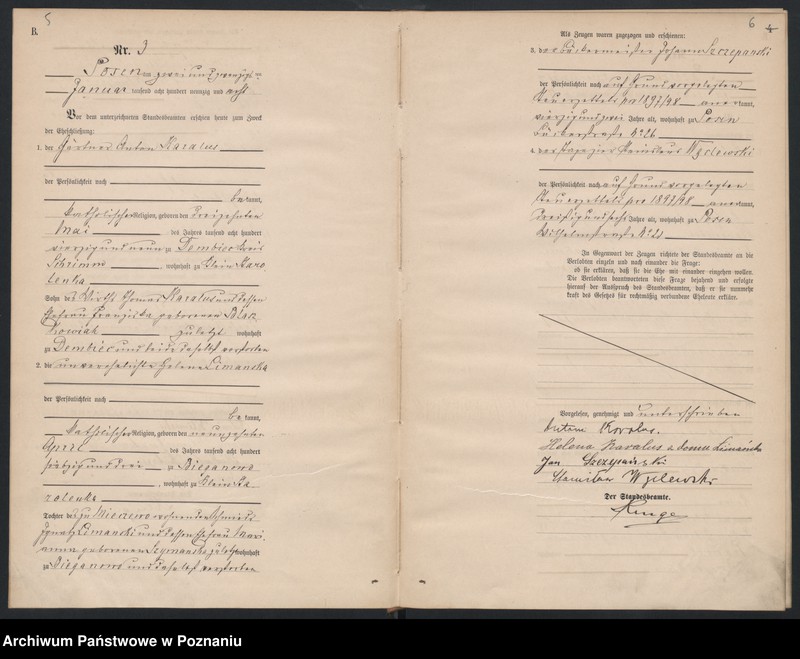 5
B.
Nr. 3
Posen am zwei und zwanzigsten
Januar tausend acht hundert neunzig und acht
Vor dem unterzeichneten Standesbeamten erschien heute zum Zweck
der Eheschließung:
1. der Gärtner Anton Karalus
der Persönlichkeit nach
be kannt,
katholischer Religion, geboren den dreizehnten
Mai des Jahres tausend acht hundert
vierzig und neun zu Dembiec Kreis
Schrimm, wohnhaft zu Klein Staro
lenka
Sohn des Wirths Thomas Karalus und dessen
Ehefrau Franziska geborenen
kowiak zuletzt wohnhaft
zu Dembiec und beide daselbst verstorben
2. die unverehelichte Helena Limanska
der Persönlichkeit nach
be kannt,
katholischer Religion, geboren den neunzehnten
April des Jahres tausend acht hundert
siebzig und drei zu Bieganowo
, wohnhaft zu Klein Sta-
rolenka
Tochter des zu wohnenden Schmieds
Ignatz Limanski und dessen Ehefrau Mari-
anna geborenen Szymanska zuletzt wohnhaft
zu Bieganowo und daselbst verstorben
6 4
Als Zeugen waren zugezogen und erschienen:
3. der Bäckermeister Johann Szczepanski
der Persönlichkeit nach auf Grund vorgelegten
Steuerzettels pro 1897/98 aner kannt,
vierzig und zwei Jahre alt, wohnhaft zu Posen
Bäckerstraße No 26
4. der Tapezier Stanislaus Wyslewski
der Persönlichkeit nach auf Grund vorgelegten
Steuerzettels pro 1897/98 aner kannt,
dreißig und sechs Jahre alt, wohnhaft zu Posen
Wilhelmstraße No
In Gegenwart der Zeugen richtete der Standesbeamte an die
Verlobten einzeln und nach einander die Frage:
ob sie erklären, daß sie die Ehe mit einander eingehen wollen.
Die Verlobten beantworteten diese Frage bejahend und erfolgte
hierauf der Ausspruch des Standesbeamten, daß er sie nunmehr
kraft des Gesetzes für rechtmäßig verbundene Eheleute erkläre.
Vorgelesen, genehmigt und unterschrieben
Antoni Karalus.
Helena Karalus z domu Limańska
Jan Szczepański
Stanisław Wyslewski
Der Standesbeamte.
Runge
Archiwum Państwowe w Poznaniu